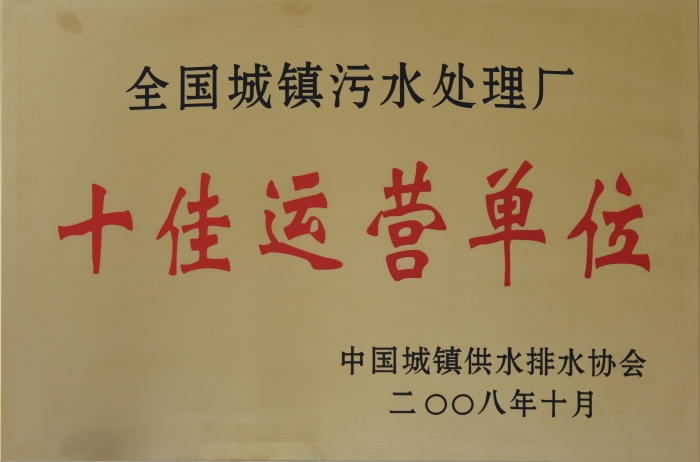 全国城镇污水处理厂
十佳运营单位
中国城镇供水排水协会
二〇〇八年十月